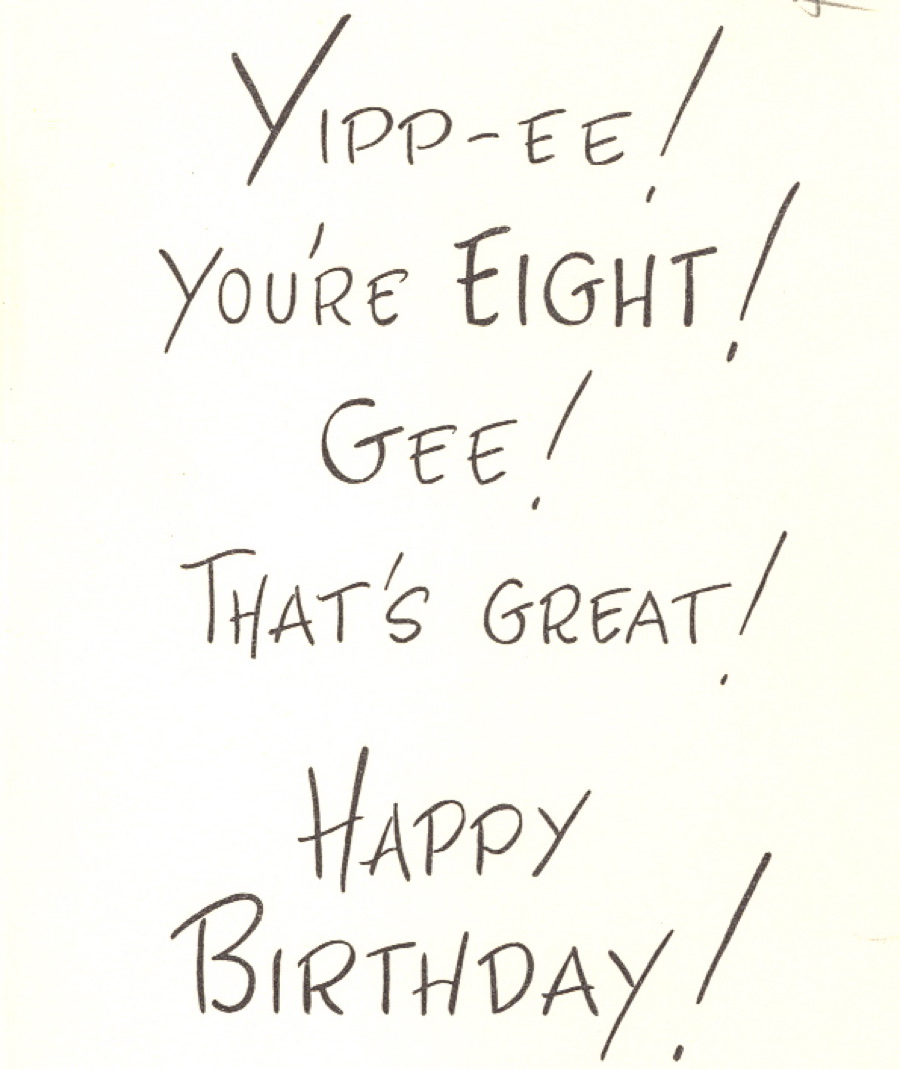 YIPP-EE!
YOU'RE EIGHT!
GEE!
THAT'S GREAT!
HAPPY
BIRTHDAY!